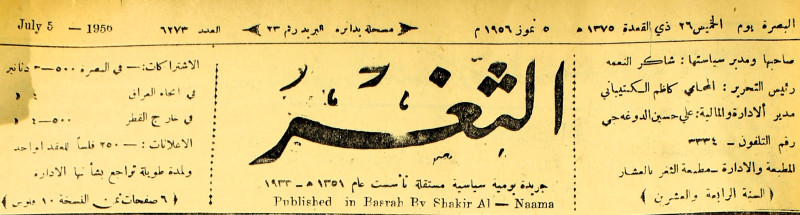 البصرة يوم الخميس ٢٦ ذي القعدة ١٣٧٥ هـ ٥ تموز ١٩٥٦ م مسجلة بدائرة البريد رقم ٢٣ العدد ٦٢٧٣ July 5 — 1956
صاحبها ومدير سياستها : شاكر النعمه
رئيس التحرير : المحامي كاظم الكتيباني
مدير الادارة والمالية : علي حسين الدوغه جي
رقم التلفون – ٣٣٣٤
المطبعة والادارة – مطبعة الثغر بالعشار
﴿ السنة الرابعة والعشرين ﴾
الثغر
جريدة يومية سياسية مستقلة تأسست عام ١٣٥١ هـ – ١٩٣٣
Published in Basrah By Shakir Al — Naama
الاشتراكات : – في البصرة ٥٠٠–٣ دنانير
في انحاء العراق ٤ »
في خارج القطر ٥٠٠–٤ »
الاعلانات : – ٢٥٠ فلساً للعقد الواحد
ولمدة طويلة تراجع بشأنها الاداره
﴿ ٦ صفحات ثمن النسخة ١٠ فلوس ﴾